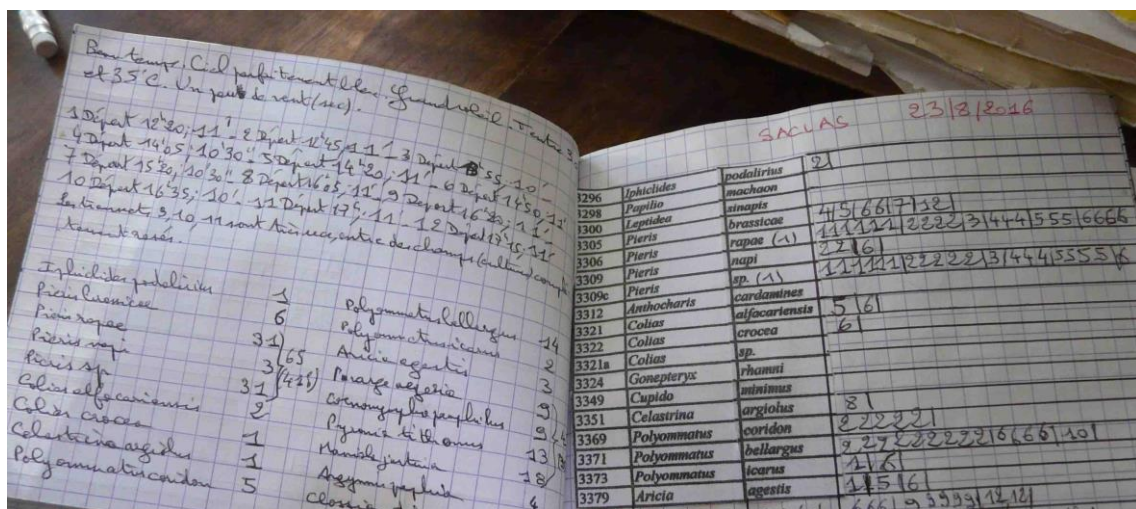 Beau temps. Ciel parfaitement bleu. Grand soleil. Entre 3
et 35°C. Un peu de vent (sec).
1 Départ 12h20; 11' - 2 Départ 12h45; 11' - 3 Départ 55; 10'
4 Départ 14h05; 10'30" - 5 Départ 14h20; 11' - 6 Départ 14h50; 11'
7 Départ 15h20; 10'30" 8 Départ 16h05; 11' - 9 Départ 16h20; 11'
10 Départ 16h35; 10'. 11 Départ 17h; 11' - 12 Départ 17h15; 11'
9, 10, 11 sont entre des champs (cultures)
rasés.
Iphiclides podalirius 1
Pieris brassicae 6
Pieris rapae 31
Pieris napi 3
Pieris sp 31
65
Colias alfacariensis 2
Colias crocea 1
Celastrina argiolus 1
Polyommatus coridon 5
Polyommatus bellargus 14
Polyommatus icarus 2
Aricia agestis 3
Pararge aegeria 9
Coenonympha pamphilus 9
Pyronia tithonus 13
Maniola jurtina 18
Argynnis paphia 4
SACLAS 23/8/2016
3296 Iphiclides podalirius 2
3298 Papilio machaon
3300 Leptidea sinapis
3305 Pieris brassicae 4|5|66|7|12|
3306 Pieris rapae (1) 111111|2222|3|444|555|6666
3309 Pieris napi 22|6|
3309c Pieris sp. (1) 111111|22222|3|444|5555|6
3312 Anthocharis cardamines
3321 Colias alfacariensis 5|6|
3322 Colias crocea 6|
3321a Colias sp.
3324 Gonepteryx rhamni
3349 Cupido minimus
3351 Celastrina argiolus 8|
3369 Polyommatus coridon 22222|
3371 Polyommatus bellargus 2222222222|6|66|10|
3373 Polyommatus icarus 1|6|
3379 Aricia agestis 1|5|6|
666|9 9999|12,12|